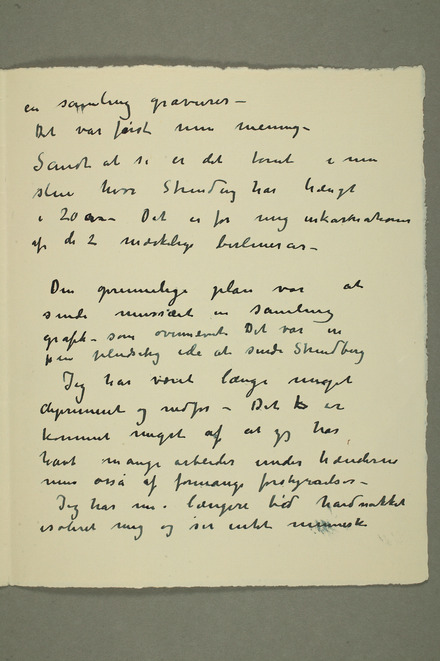 en samling gravurer –
Det var først min mening –
Sandt at si er det tomt i min
stue hvor Strindberg har hængt
i 20 aar – Det er for mig inkarnationen
af de 2 mærkelige berlinerår –
Den oprinnelige plan var at
sende museet en samling
grafik – som ovennævnt Det var en
pludselig ide at sende Strindberg
Jeg har været længe meget
deprimeret og nedfor – Det er
kommet meget af at jeg har
havt mange arbeider under hænderne
men også af formange forstyrrelser –
Jeg har nu i længere tid hardnakket
isoleret mig og ser intet menneske